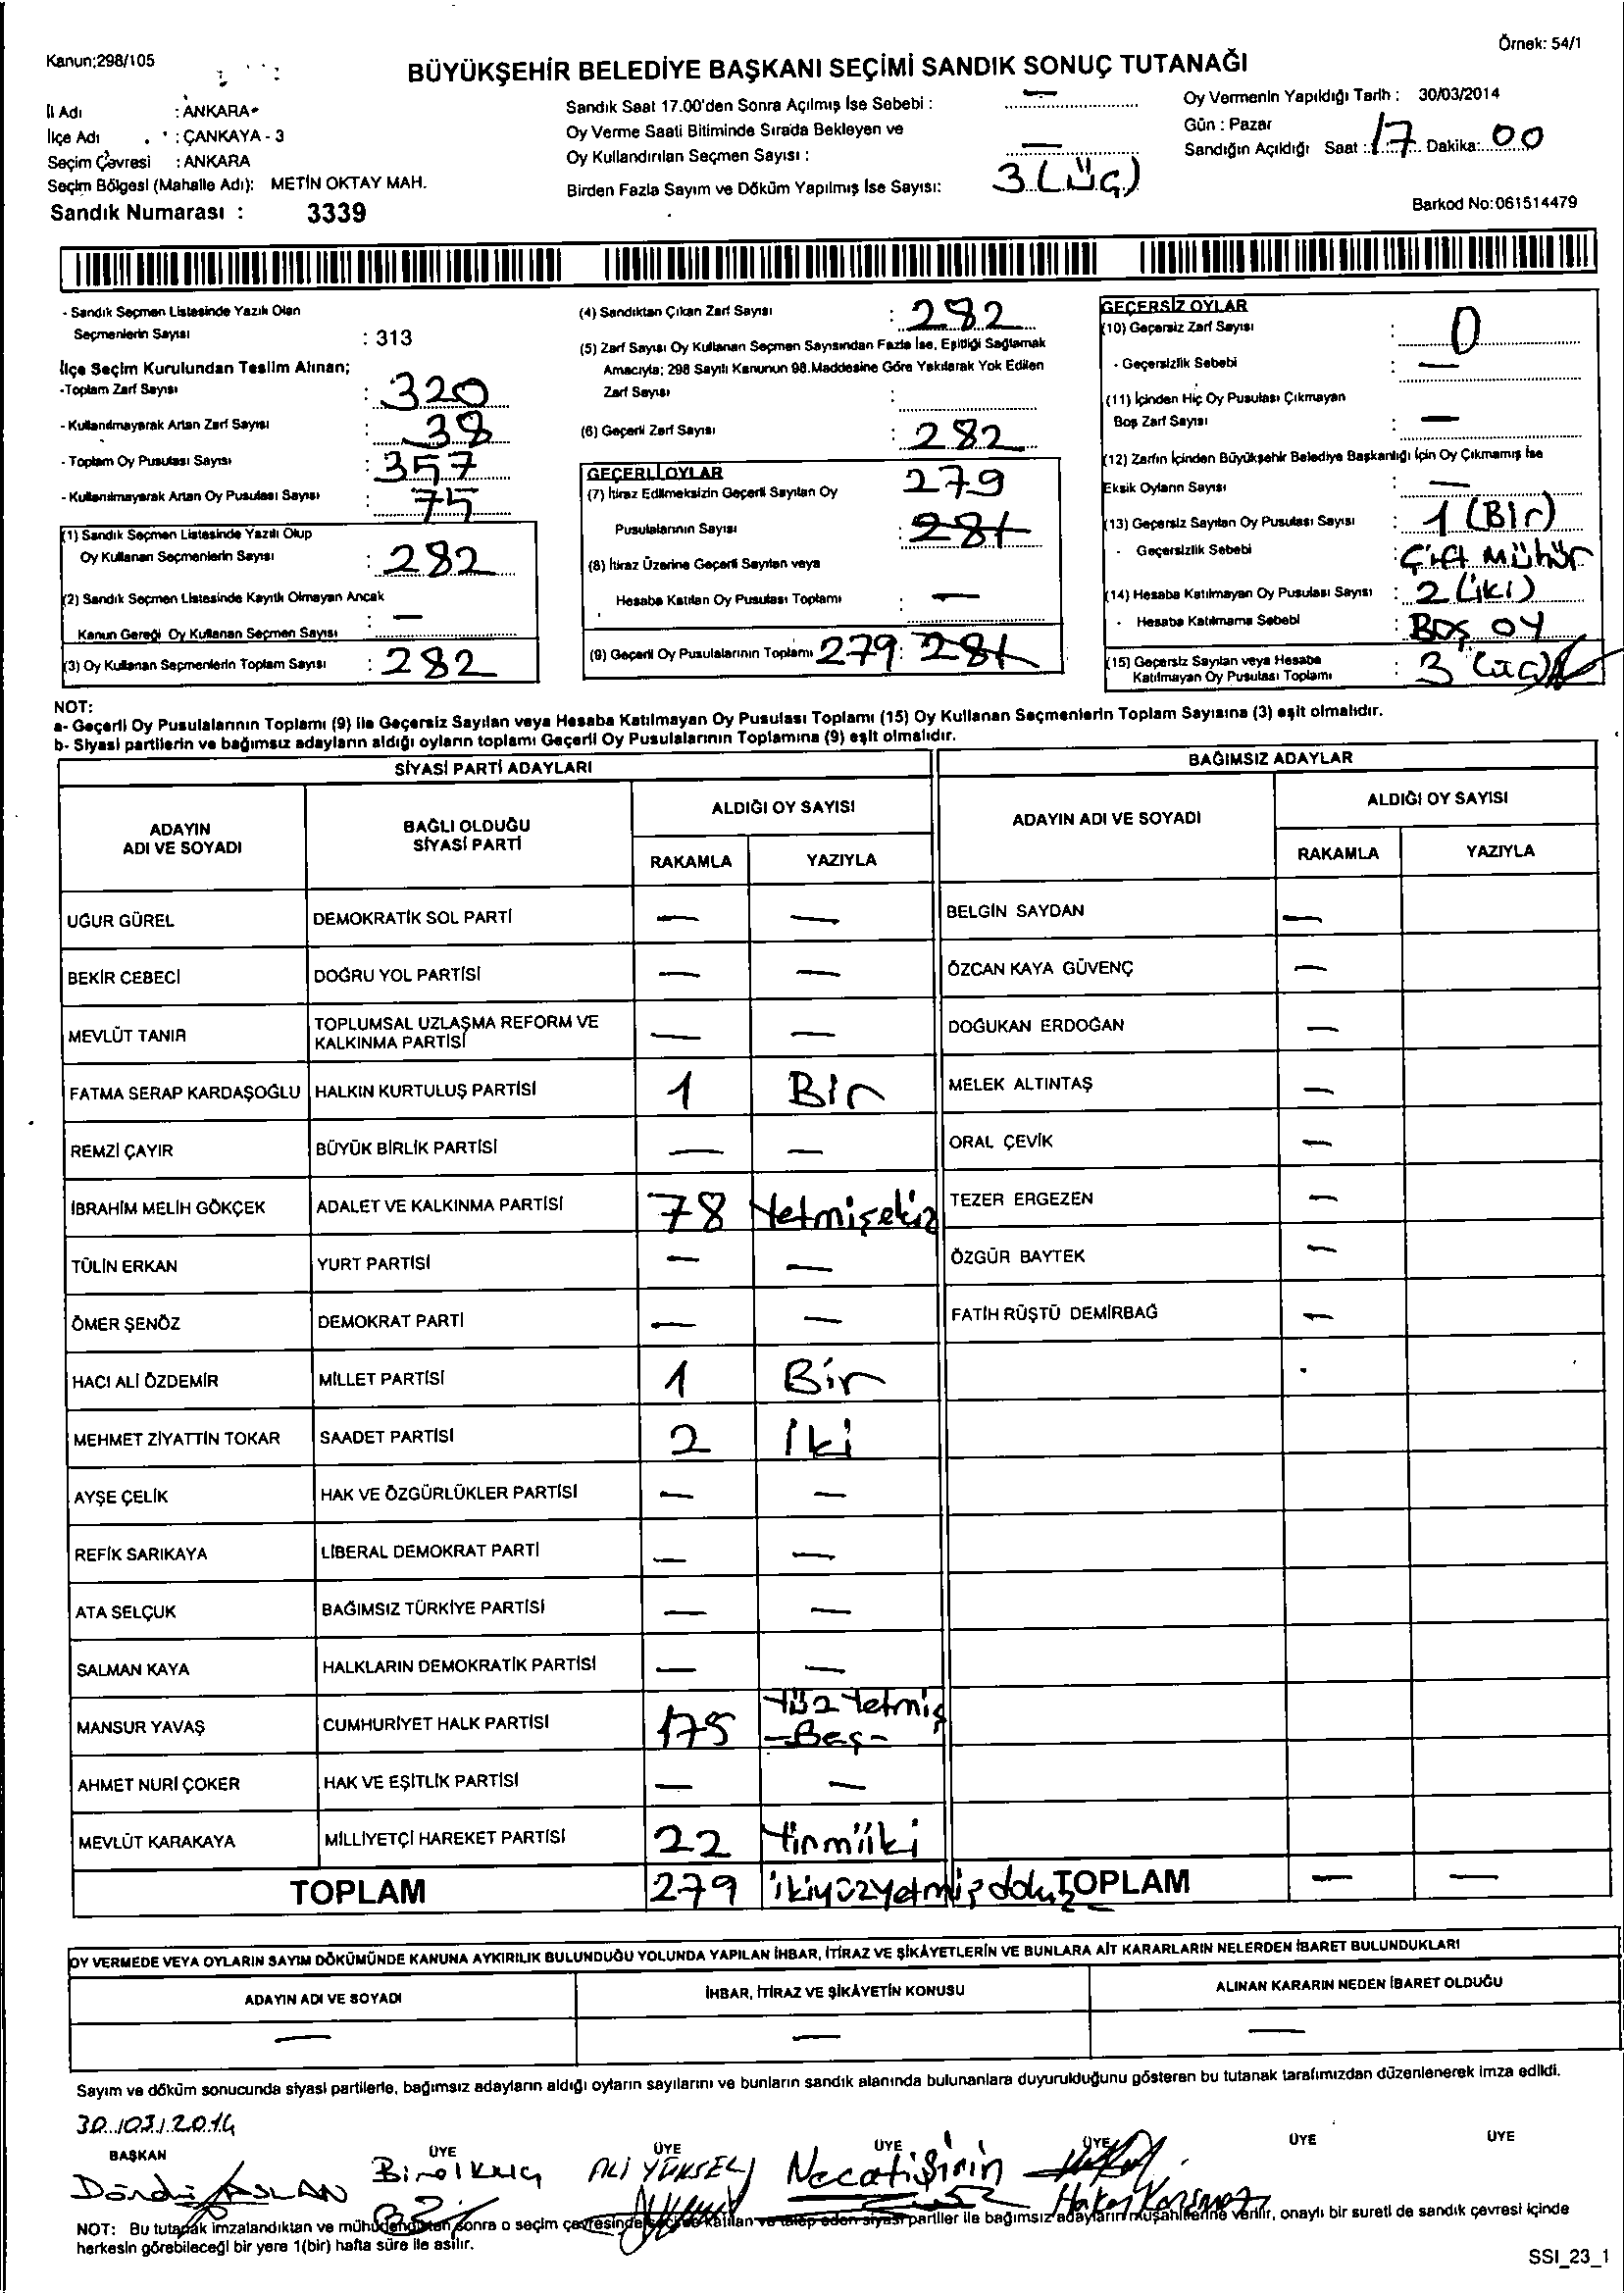 Kanun;298/105
Örnek: 54/1
BÜYÜKŞEHİR BELEDİYE BAŞKANI SEÇİMİ SANDIK SONUÇ TUTANAĞI
İl Adı : ANKARA
İlçe Adı : ÇANKAYA - 3
Seçim Çevresi : ANKARA
Seçim Bölgesi (Mahalle Adı): METİN OKTAY MAH.
Sandık Numarası : 3339
Sandık Saat 17.00'den Sonra Açılmış İse Sebebi : —
Oy Verme Saati Bitiminde Sırada Bekleyen ve
Oy Kullandırılan Seçmen Sayısı : —
Birden Fazla Sayım ve Döküm Yapılmış İse Sayısı: 3 (Üç)
Oy Vermenin Yapıldığı Tarih : 30/03/2014
Gün : Pazar
Sandığın Açıldığı Saat : 17 Dakika: 00
Barkod No:061514479
- Sandık Seçmen Listesinde Yazılı Olan
Seçmenlerin Sayısı : 313
İlçe Seçim Kurulundan Teslim Alınan;
-Toplam Zarf Sayısı : 320
- Kullanılmayarak Artan Zarf Sayısı : 38
- Toplam Oy Pusulası Sayısı : 357
- Kullanılmayarak Artan Oy Pusulası Sayısı : 75
(1) Sandık Seçmen Listesinde Yazılı Olup
Oy Kullanan Seçmenlerin Sayısı : 282
(2) Sandık Seçmen Listesinde Kayıtlı Olmayan Ancak
Kanun Gereği Oy Kullanan Seçmen Sayısı : —
(3) Oy Kullanan Seçmenlerin Toplam Sayısı : 282
(4) Sandıktan Çıkan Zarf Sayısı : 282
(5) Zarf Sayısı Oy Kullanan Seçmen Sayısından Fazla İse, Eşitliği Sağlamak
Amacıyla; 298 Sayılı Kanunun 98.Maddesine Göre Yakılarak Yok Edilen
Zarf Sayısı :
(6) Geçerli Zarf Sayısı : 282
GEÇERLİ OYLAR
(7) İtiraz Edilmeksizin Geçerli Sayılan Oy 279
Pusulalarının Sayısı : 281
(8) İtiraz Üzerine Geçerli Sayılan veya
Hesaba Katılan Oy Pusulası Toplamı : —
(9) Geçerli Oy Pusulalarının Toplamı 279 : 281
GEÇERSİZ OYLAR
(10) Geçersiz Zarf Sayısı : 0
- Geçersizlik Sebebi : —
(11) İçinden Hiç Oy Pusulası Çıkmayan
Boş Zarf Sayısı : —
(12) Zarfın İçinden Büyükşehir Belediye Başkanlığı İçin Oy Çıkmamış İse
Eksik Oyların Sayısı : —
(13) Geçersiz Sayılan Oy Pusulası Sayısı : 1 (Bir)
- Geçersizlik Sebebi : Çift Mühür
(14) Hesaba Katılmayan Oy Pusulası Sayısı : 2 (iki)
- Hesaba Katılmama Sebebi : Boş oy
(15) Geçersiz Sayılan veya Hesaba
Katılmayan Oy Pusulası Toplamı : 3 (üç)
NOT:
a- Geçerli Oy Pusulalarının Toplamı (9) ile Geçersiz Sayılan veya Hesaba Katılmayan Oy Pusulası Toplamı (15) Oy Kullanan Seçmenlerin Toplam Sayısına (3) eşit olmalıdır.
b- Siyasi partilerin ve bağımsız adayların aldığı oyların toplamı Geçerli Oy Pusulalarının Toplamına (9) eşit olmalıdır.
SİYASİ PARTİ ADAYLARI
BAĞIMSIZ ADAYLAR
ADAYIN ADI VE SOYADI
BAĞLI OLDUĞU SİYASİ PARTİ
ALDIĞI OY SAYISI
RAKAMLA YAZIYLA
ADAYIN ADI VE SOYADI
ALDIĞI OY SAYISI
RAKAMLA YAZIYLA
UĞUR GÜREL DEMOKRATİK SOL PARTİ — — BELGİN SAYDAN —
BEKİR CEBECİ DOĞRU YOL PARTİSİ — — ÖZCAN KAYA GÜVENÇ —
MEVLÜT TANIR TOPLUMSAL UZLAŞMA REFORM VE KALKINMA PARTİSİ — — DOĞUKAN ERDOĞAN —
FATMA SERAP KARDAŞOĞLU HALKIN KURTULUŞ PARTİSİ 1 Bir MELEK ALTINTAŞ —
REMZİ ÇAYIR BÜYÜK BİRLİK PARTİSİ — — ORAL ÇEVİK —
İBRAHİM MELİH GÖKÇEK ADALET VE KALKINMA PARTİSİ 78 Yetmişekiz TEZER ERGEZEN —
TÜLİN ERKAN YURT PARTİSİ — — ÖZGÜR BAYTEK —
ÖMER ŞENÖZ DEMOKRAT PARTİ — — FATİH RÜŞTÜ DEMİRBAĞ —
HACI ALİ ÖZDEMİR MİLLET PARTİSİ 1 Bir
MEHMET ZİYATTİN TOKAR SAADET PARTİSİ 2 İki
AYŞE ÇELİK HAK VE ÖZGÜRLÜKLER PARTİSİ — —
REFİK SARIKAYA LİBERAL DEMOKRAT PARTİ — —
ATA SELÇUK BAĞIMSIZ TÜRKİYE PARTİSİ — —
SALMAN KAYA HALKLARIN DEMOKRATİK PARTİSİ — —
MANSUR YAVAŞ CUMHURİYET HALK PARTİSİ 175 Yüz Yetmiş -Beş-
AHMET NURİ ÇOKER HAK VE EŞİTLİK PARTİSİ — —
MEVLÜT KARAKAYA MİLLİYETÇİ HAREKET PARTİSİ 22 Yirmiiki
TOPLAM 279 ikiyüzyetmişdokuz TOPLAM — —
OY VERMEDE VEYA OYLARIN SAYIM DÖKÜMÜNDE KANUNA AYKIRILIK BULUNDUĞU YOLUNDA YAPILAN İHBAR, İTİRAZ VE ŞİKÂYETLERİN VE BUNLARA AİT KARARLARIN NELERDEN İBARET BULUNDUKLARI
ADAYIN ADI VE SOYADI İHBAR, İTİRAZ VE ŞİKÂYETİN KONUSU ALINAN KARARIN NEDEN İBARET OLDUĞU
— — —
Sayım ve döküm sonucunda siyasi partilerle, bağımsız adayların aldığı oyların sayılarını ve bunların sandık alanında bulunanlara duyurulduğunu gösteren bu tutanak tarafımızdan düzenlenerek imza edildi.
30/03/2014
BAŞKAN ÜYE ÜYE ÜYE ÜYE ÜYE ÜYE
ASLAN Birol Kılıç ALİ YÜKSEL Necati Şirin Hakan
NOT: Bu tutanak imzalandıktan ve mühürlendikten sonra o seçim çevresinde katılan ve talep eden siyasi partiler ile bağımsız adayların müşahitlerine verilir, onaylı bir sureti de sandık çevresi içinde
herkesin görebileceği bir yere 1(bir) hafta süre ile asılır.
SSI_23_1